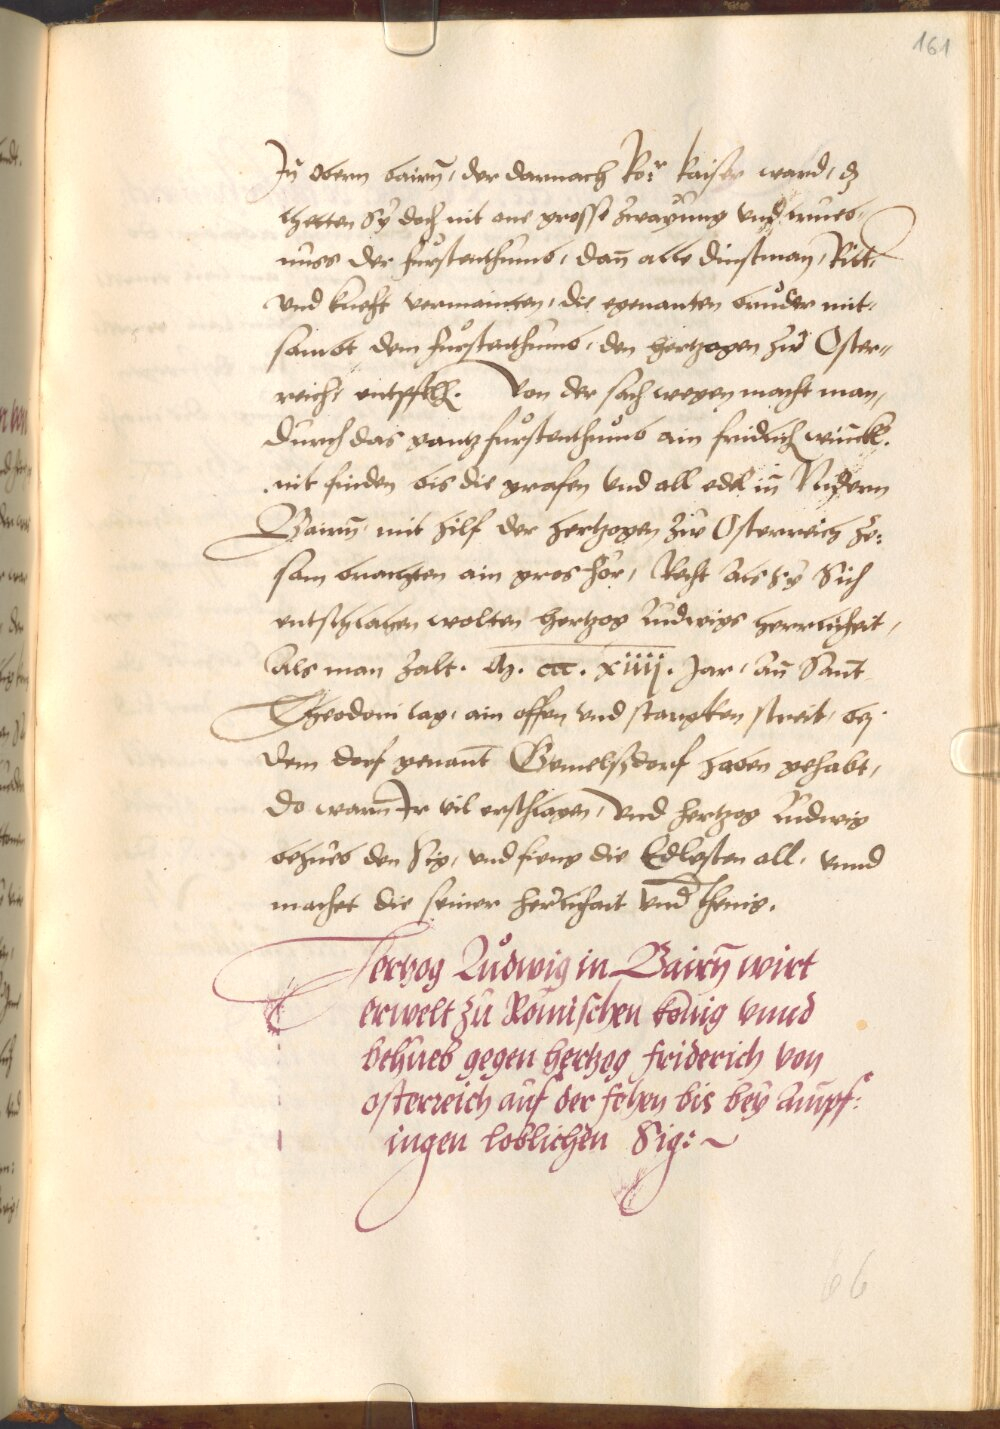 161
Jn̄ obern bairn̄, der darnach Rö:r kaiser ward, dz
thetten Sy doch nit one grosse zwayung vnd irrues-
nuss der fürstenthumb, dan̄ alle dinstman, Ritt,
vnd knecht vermainten, die egenanten brüder mit-
sambt dem fürstenthumb, den hertzogen zw Oster=
reich, entpfelh. Von der sach wegen macht man,
durch das gantz fürstenthumb ain fridlich
nit finden bis die grafen vnd all edel in̄ Nidern
Bairn̄, mit hilf der hertzogen zw Osterreich ze:
sam brachten ain gros hör, Recht als Sy Sich
entschlahen wolten hertzog Ludwigs herrlicheit,
Als man zalt. M. ccc. xiiij. Jar, an̄ Sant
Theodori tag, ain offen vnd starcken streit, bej
dem dorf genant Gemelsdorf haben gehabt,
do warn̄ Jr vil erschlagen, vnd hertzog Ludwig
behueb den Sig, vnd fieng die Edlesten all, vnnd
machet die seiner herlichait vnd thenig.
Hertzog Ludwig in Bairn̄ wirt
erwelt zu Römischen könig vnnd
behueb gegen hertzog friderich von
osterreich auf der fehen bis bey Ampf:
ingen loblichen Sig: ~
66